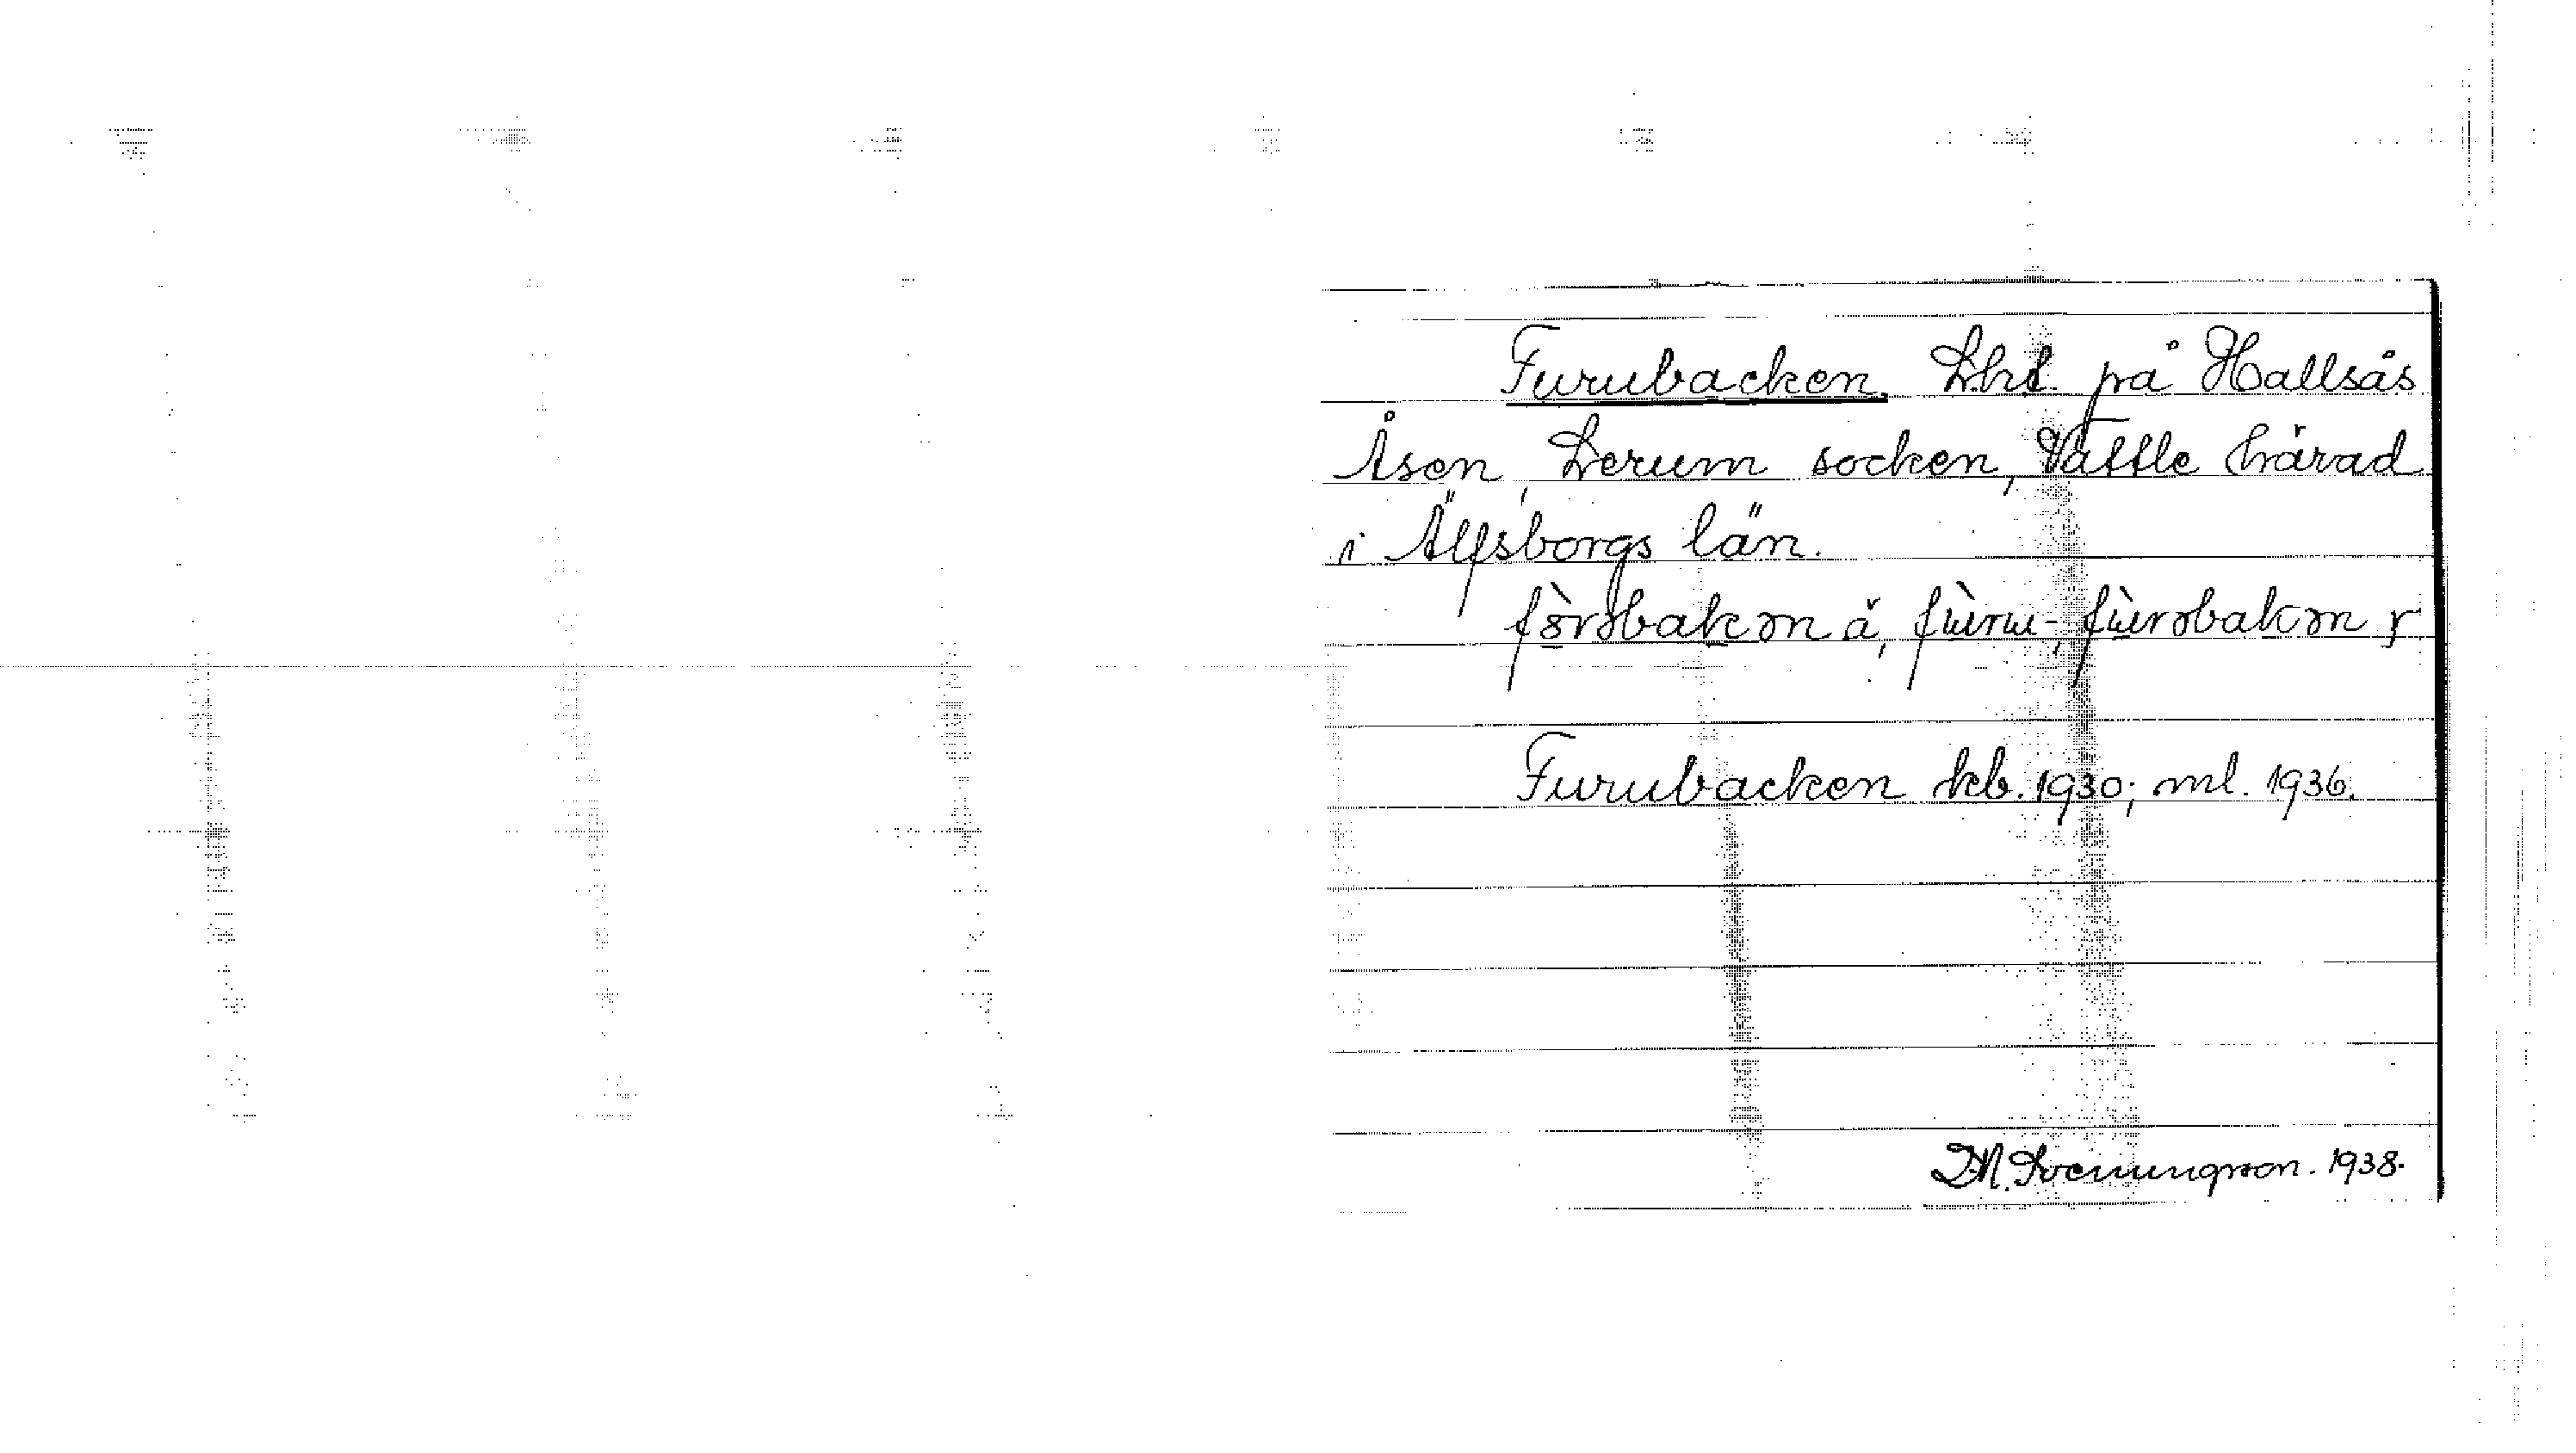 Furubacken. Lht. på Hallsås
Åsen, Lerum socken, Vättle härad
i Älfsborgs län.
Furubacken kb. 1930; ml. 1936.
D.M. Svenungsson. 1938.